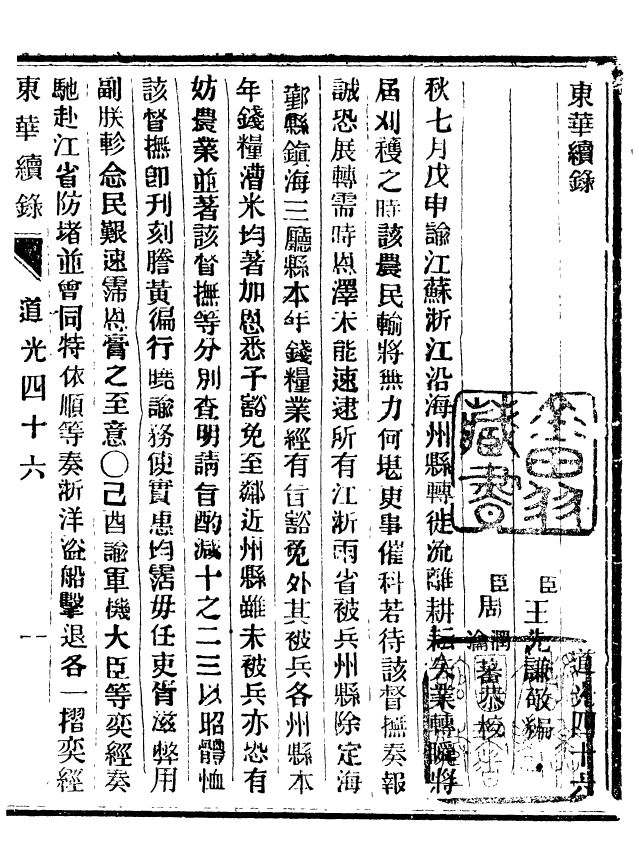 東華續錄
道光四十六
臣王先謙敬編
臣周潤蕃恭校
秋七月戊申諭江蘇浙江沿海州縣轉徙流離耕耘失業轉瞬將
屆刈穫之時該農民輸將無力何堪更事催科若待該督撫奏報
誠恐展轉需時恩澤未能速逮所有江浙兩省被兵州縣除定海
鄞縣鎮海三廳縣本年錢糧業經有旨豁免外其被兵各州縣本
年錢糧漕米均著加恩悉予豁免至鄰近州縣雖未被兵亦恐有
妨農業並著該督撫等分別查明請旨酌減十之二三以昭體恤
該督撫卽刊刻謄黃徧行曉諭務使實惠均霑毋任吏胥滋弊用
副朕軫念民艱速霈恩膏之至意〇己酉諭軍機大臣等奕經奏
馳赴江省防堵並會同特依順等奏浙洋盜船擊退各一摺奕經
東華續錄
道光四十六
一